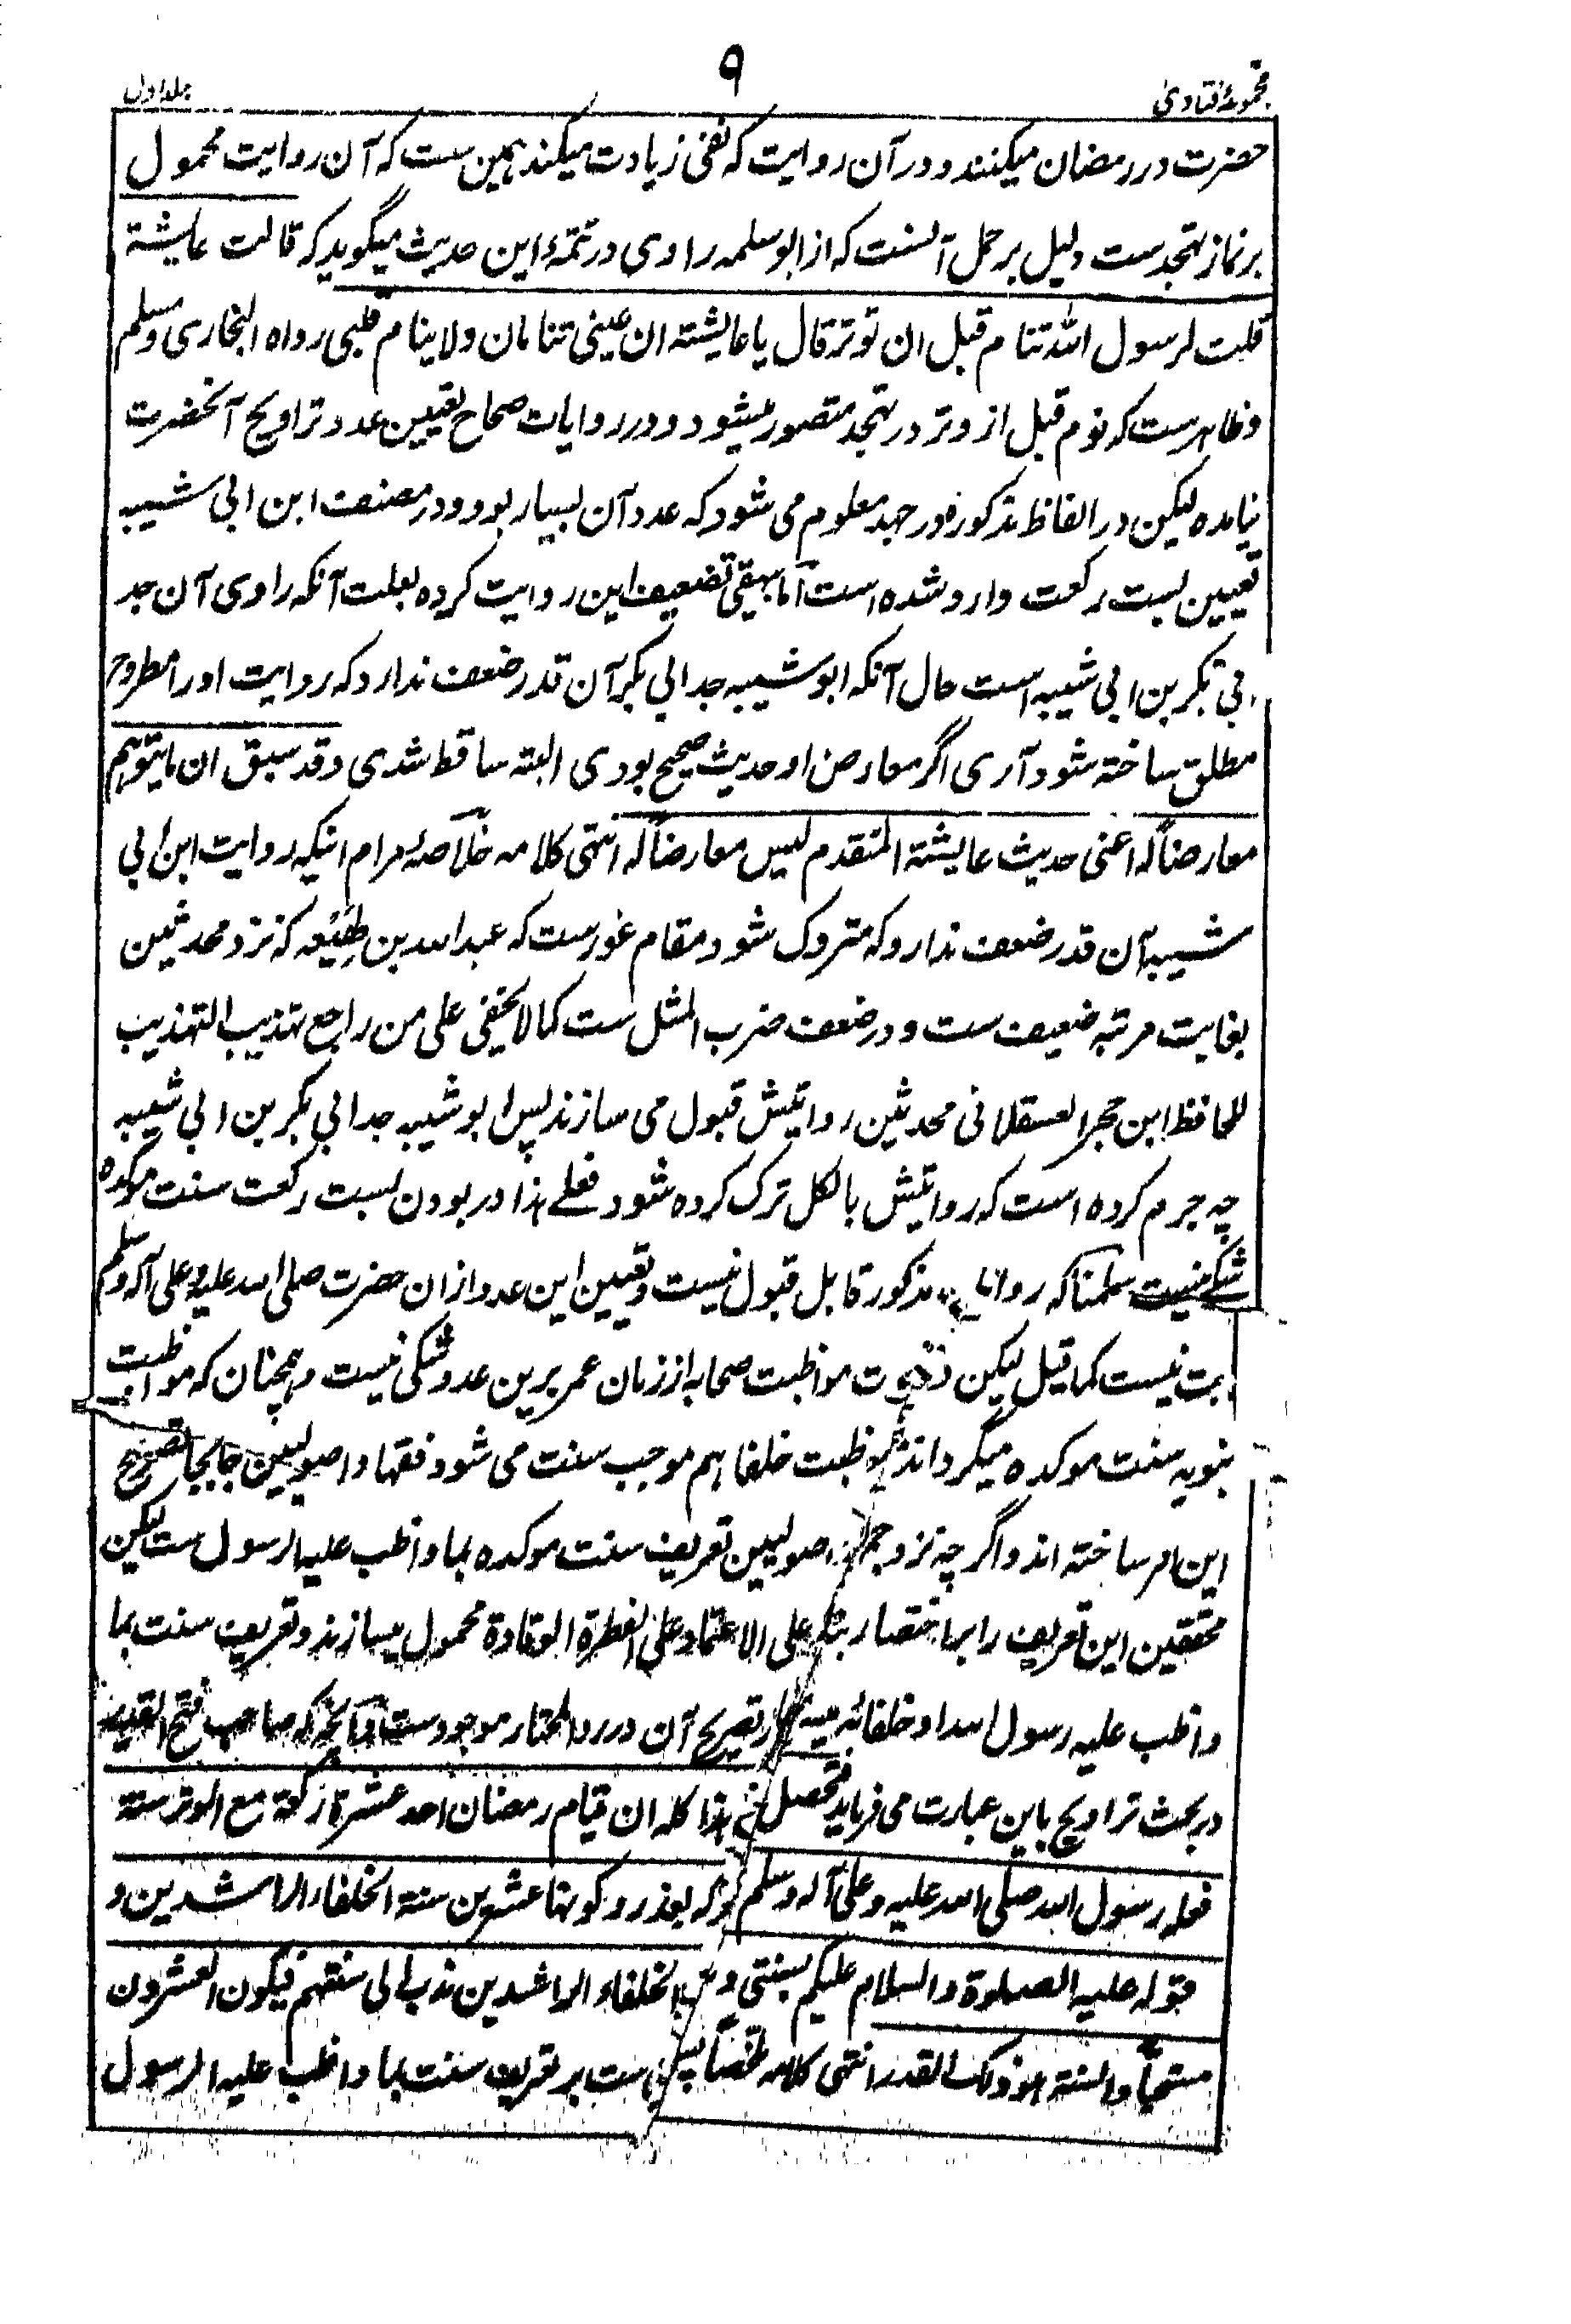 مجموعۂ فتاوی
۹
جلد اول
حضرت در رمضان میکنند و در آن روایت که نفی زیادت میکند ہمین ست که آن روایت محمول
بر نماز تہجدست دلیل بر حمل آنست که از ابو سلمه راوی در تتمۂ این حدیث میگوید که قالت عایشة
قلت لرسول الله تنام قبل ان توتر قال یا عایشة ان عینی تنامان ولا ینام قلبی رواه البخاری ومسلم
وظاہرست که نوم قبل از وتر در تہجد متصور میشود و در روایات صحاح تعیین عدد تراویح آنحضرت
نیامده لیکن در الفاظ مذکوره در جہد معلوم می شود که عدد آن بسیار بود و در مصنف ابن ابی شیبه
تعیین بست رکعت وارد شده است اما بیہقی تضعیف این روایت کرده بعلت آنکه راوی آن جد
ابی بکر بن ابی شیبه است حال آنکه ابو شیبه جد ابی بکر آن قدر ضعف ندارد که روایت او را مطروح
مطلق ساخته شود آری اگر معارض او حدیث صحیح بودی البته ساقط شدی وقد سبق ان مایتوہم
معارضاً له اعنی حدیث عایشة المتقدم لیس معارضاً له انتہی کلامه خلاصۂ مرام اینکه روایت ابن ابی
شیبه آن قدر ضعف ندارد که متروک شود مقام غورست که عبد الله بن لہیعه که نزد محدثین
بغایت مرتبه ضعیف ست و در ضعف ضرب المثل ست کما لا یخفی علی من راجع تہذیب التہذیب
للحافظ ابن حجر العسقلانی محدثین روایتش قبول می سازند پس ابو شیبه جد ابی بکر بن ابی شیبه
چه جرم کرده است که روایتش بالکل ترک کرده شود فعلے ہذا در بودن بست رکعت سنت موکده
شکے نیست سلمنا که مذکور قابل قبول نیست وتعیین این عدد ازان حضرت صلی الله علیه وعلی آله وسلم
نیست کما قیل لیکن مواظبت صحابه از زمان عمر برین عدد شکی نیست وہمچنان که مواظبت
نبویه سنت موکده میگرداند مواظبت خلفا ہم موجب سنت می شود فقہا و اصولیین جابجا تصریح
این امر ساخته اند و اگر چه نزد اصولیین تعریف سنت موکده بما واظب علیه الرسول ست لیکن
محققین این تعریف را بر اختصار بناء علی الاعتماد علی الفطرة الوقادة محمول میسازند و تعریف سنت بما
واظب علیه رسول الله او خلفائه تصریح آن در رد المحتار موجودست که صاحب فتح القدیر
در بحث تراویح باین عبارت می فرماید فتحصل ہذا کله ان قیام رمضان احد عشرة رکعة مع الوتر سنة
فعله رسول الله صلی الله علیه وعلی آله وسلم لعذر وکونہا عشرین سنة الخلفاء الراشدین و
قوله علیه الصلوة والسلام علیکم بسنتی و الخلفاء الراشدین ندب الی سنتہم فیکون العشرون
مستحباً والسنة ہو ذلک القدر انتہی کلامه ملخصاً ست بر تعریف سنت بما واظب علیه الرسول